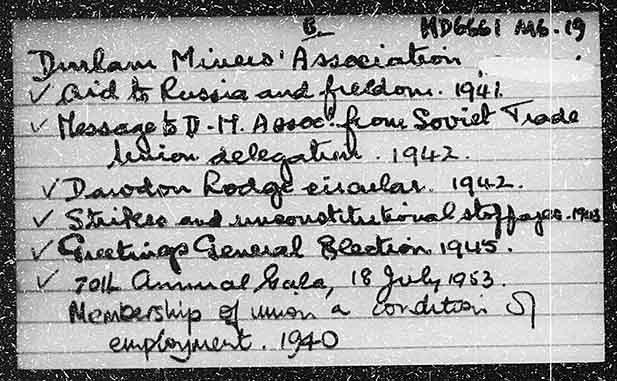 B HD6661 M6.19
Durham Miners' Association
✓ Aid to Russia and freedom. 1941.
✓ Message to D.M. Assoc. from Soviet Trade
Union delegation. 1942.
✓ Dawdon Lodge circular. 1942.
✓ Strikes and unconstitutional stoppages. 1943
✓ Greetings General Election 1945.
✓ 70th Annual Gala, 18 July 1953.
Membership of union a condition of
employment. 1940